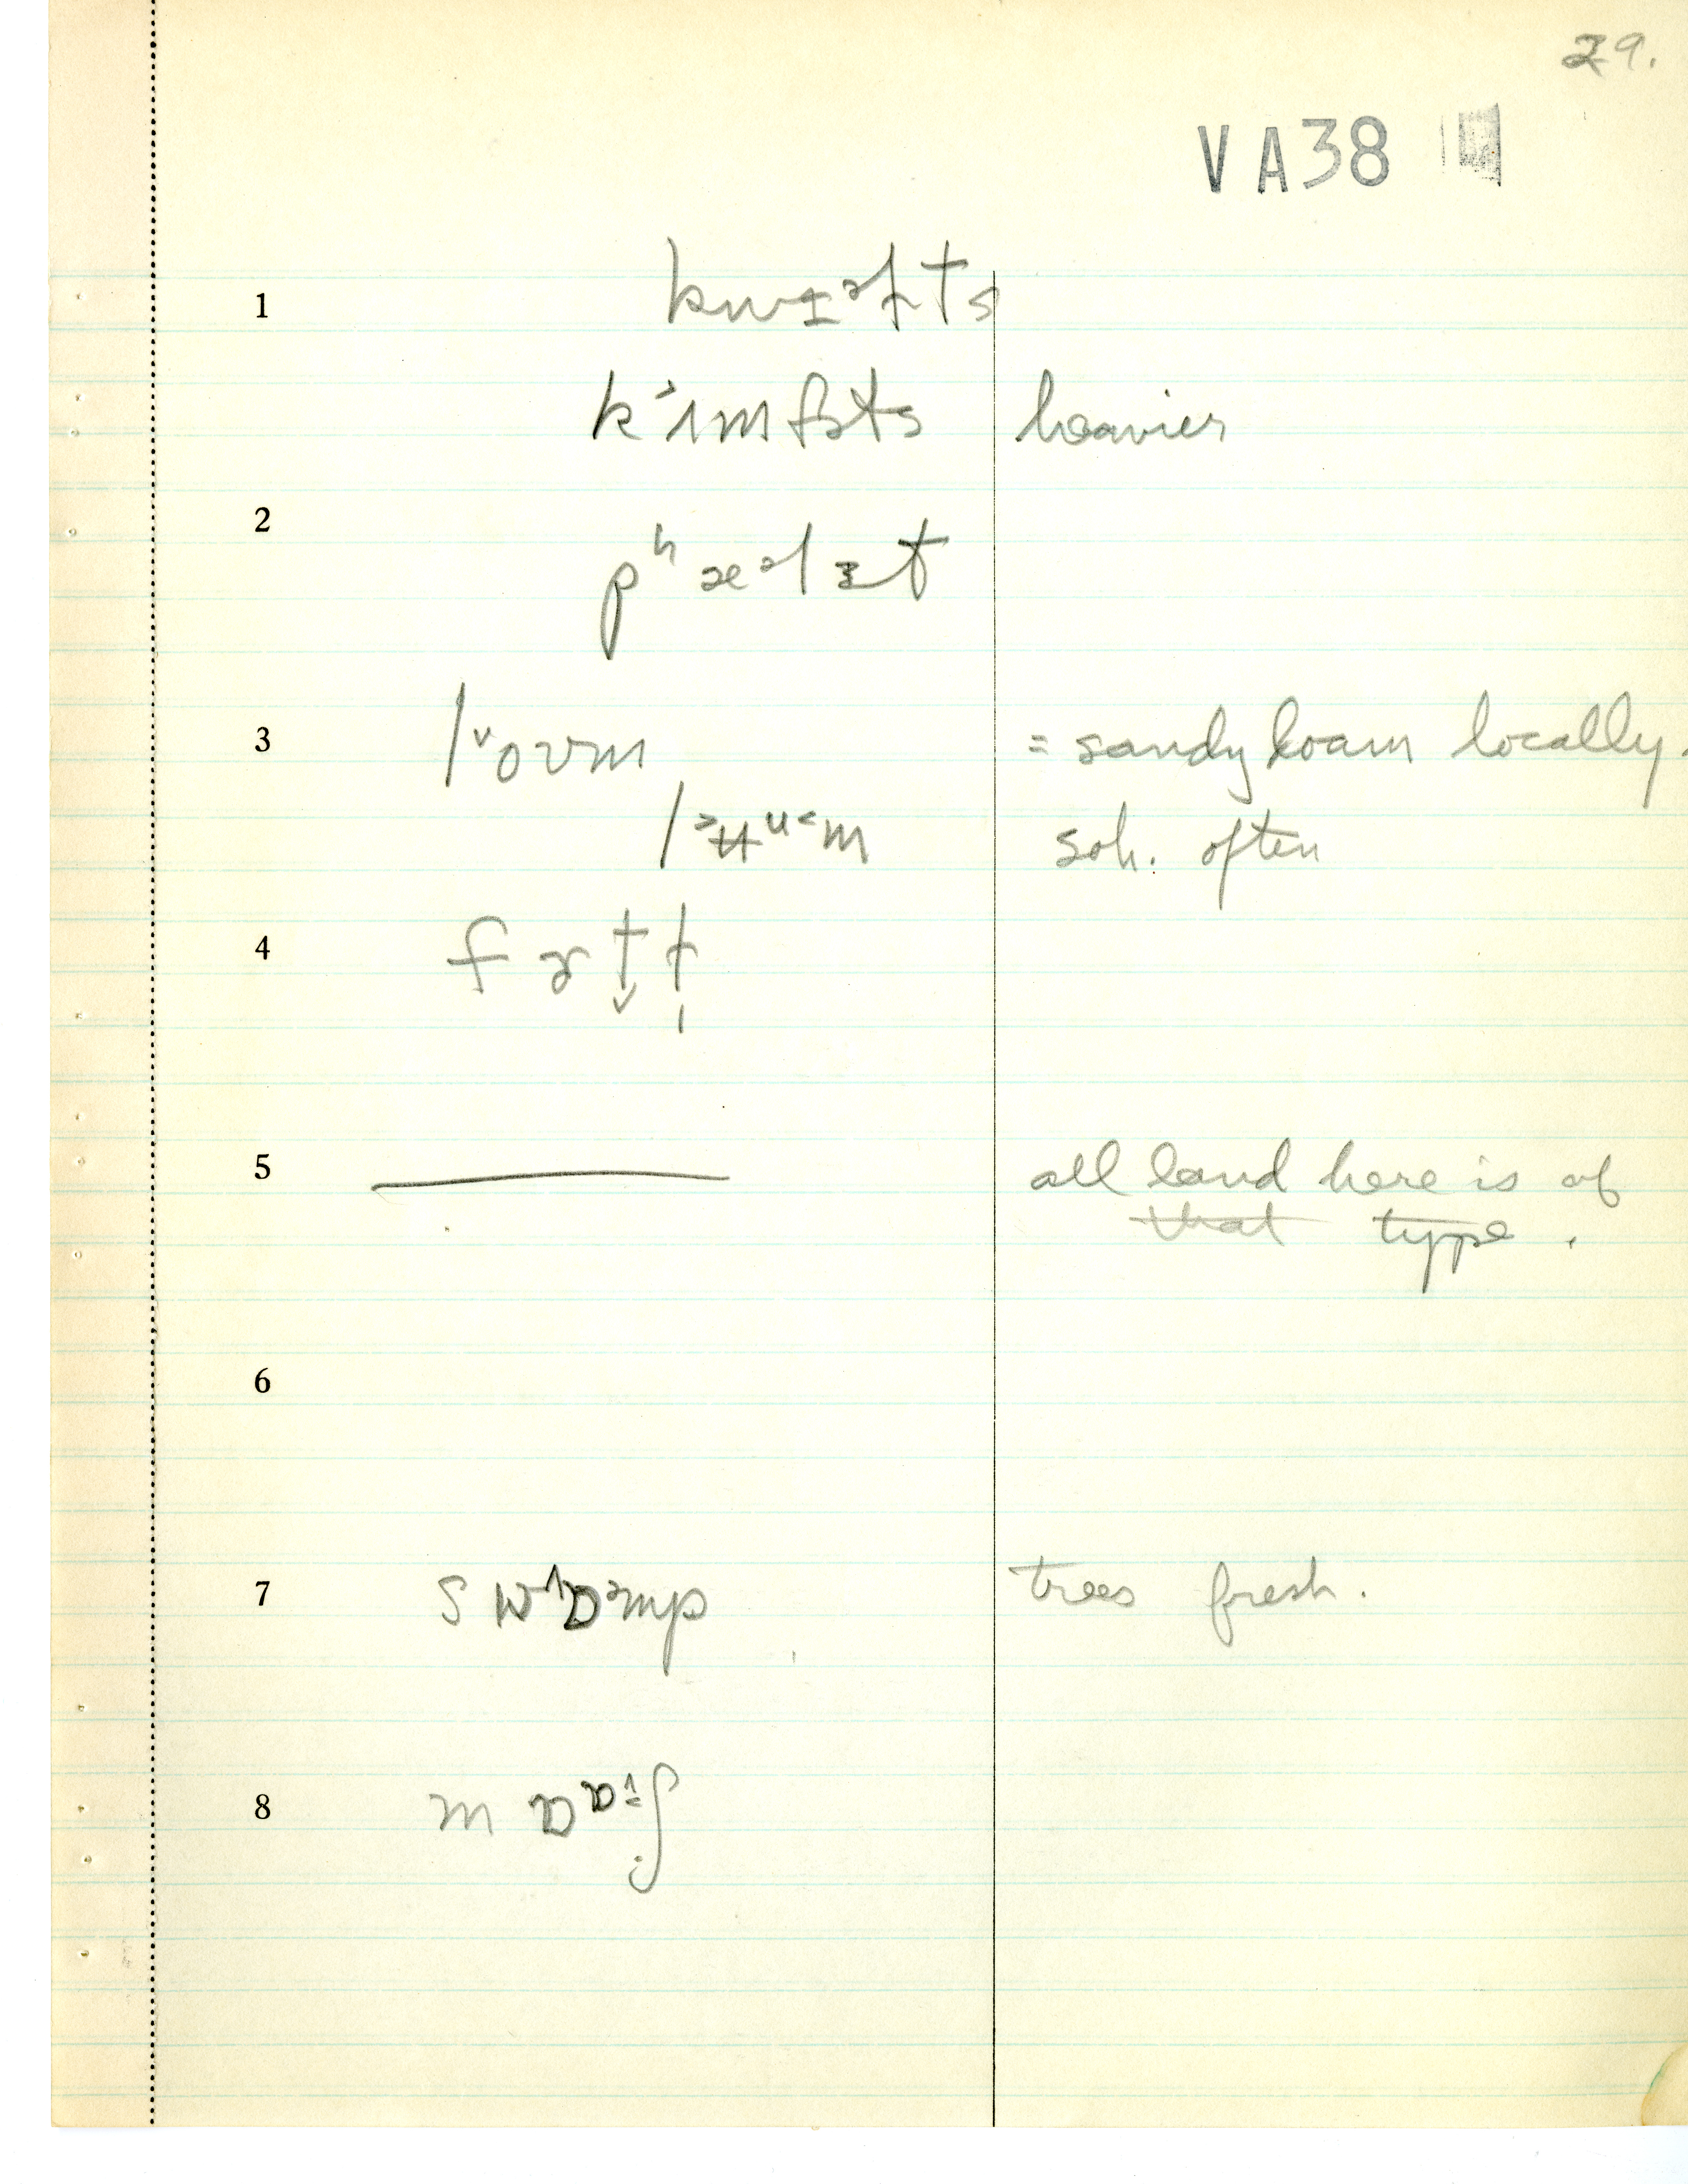 29.
VA38
1 kwɪᵊɫts
k˃ɪmfɚts heavier
2 pʰæᵊlɪt
3 l˅oʊm = sandy loam locally.
l˃ʉᵘ˂m sob. often
4 fɤt̬ɫ̩
5 —— all land here is of
that type.
6
7 swɒmp trees fresh.
8 mɒɒʃ